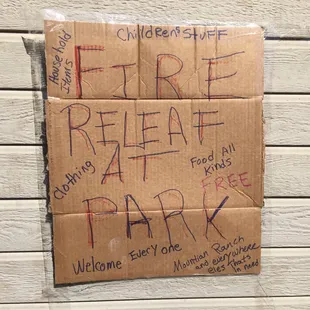 Chilldren's Stuff
Household
items
FIRE
RELEAF
AT
Clothing
Food All
Kinds
FREE
PARK
Welcome Everyone
Mountian Ranch
and everywhere
eles thats
in need